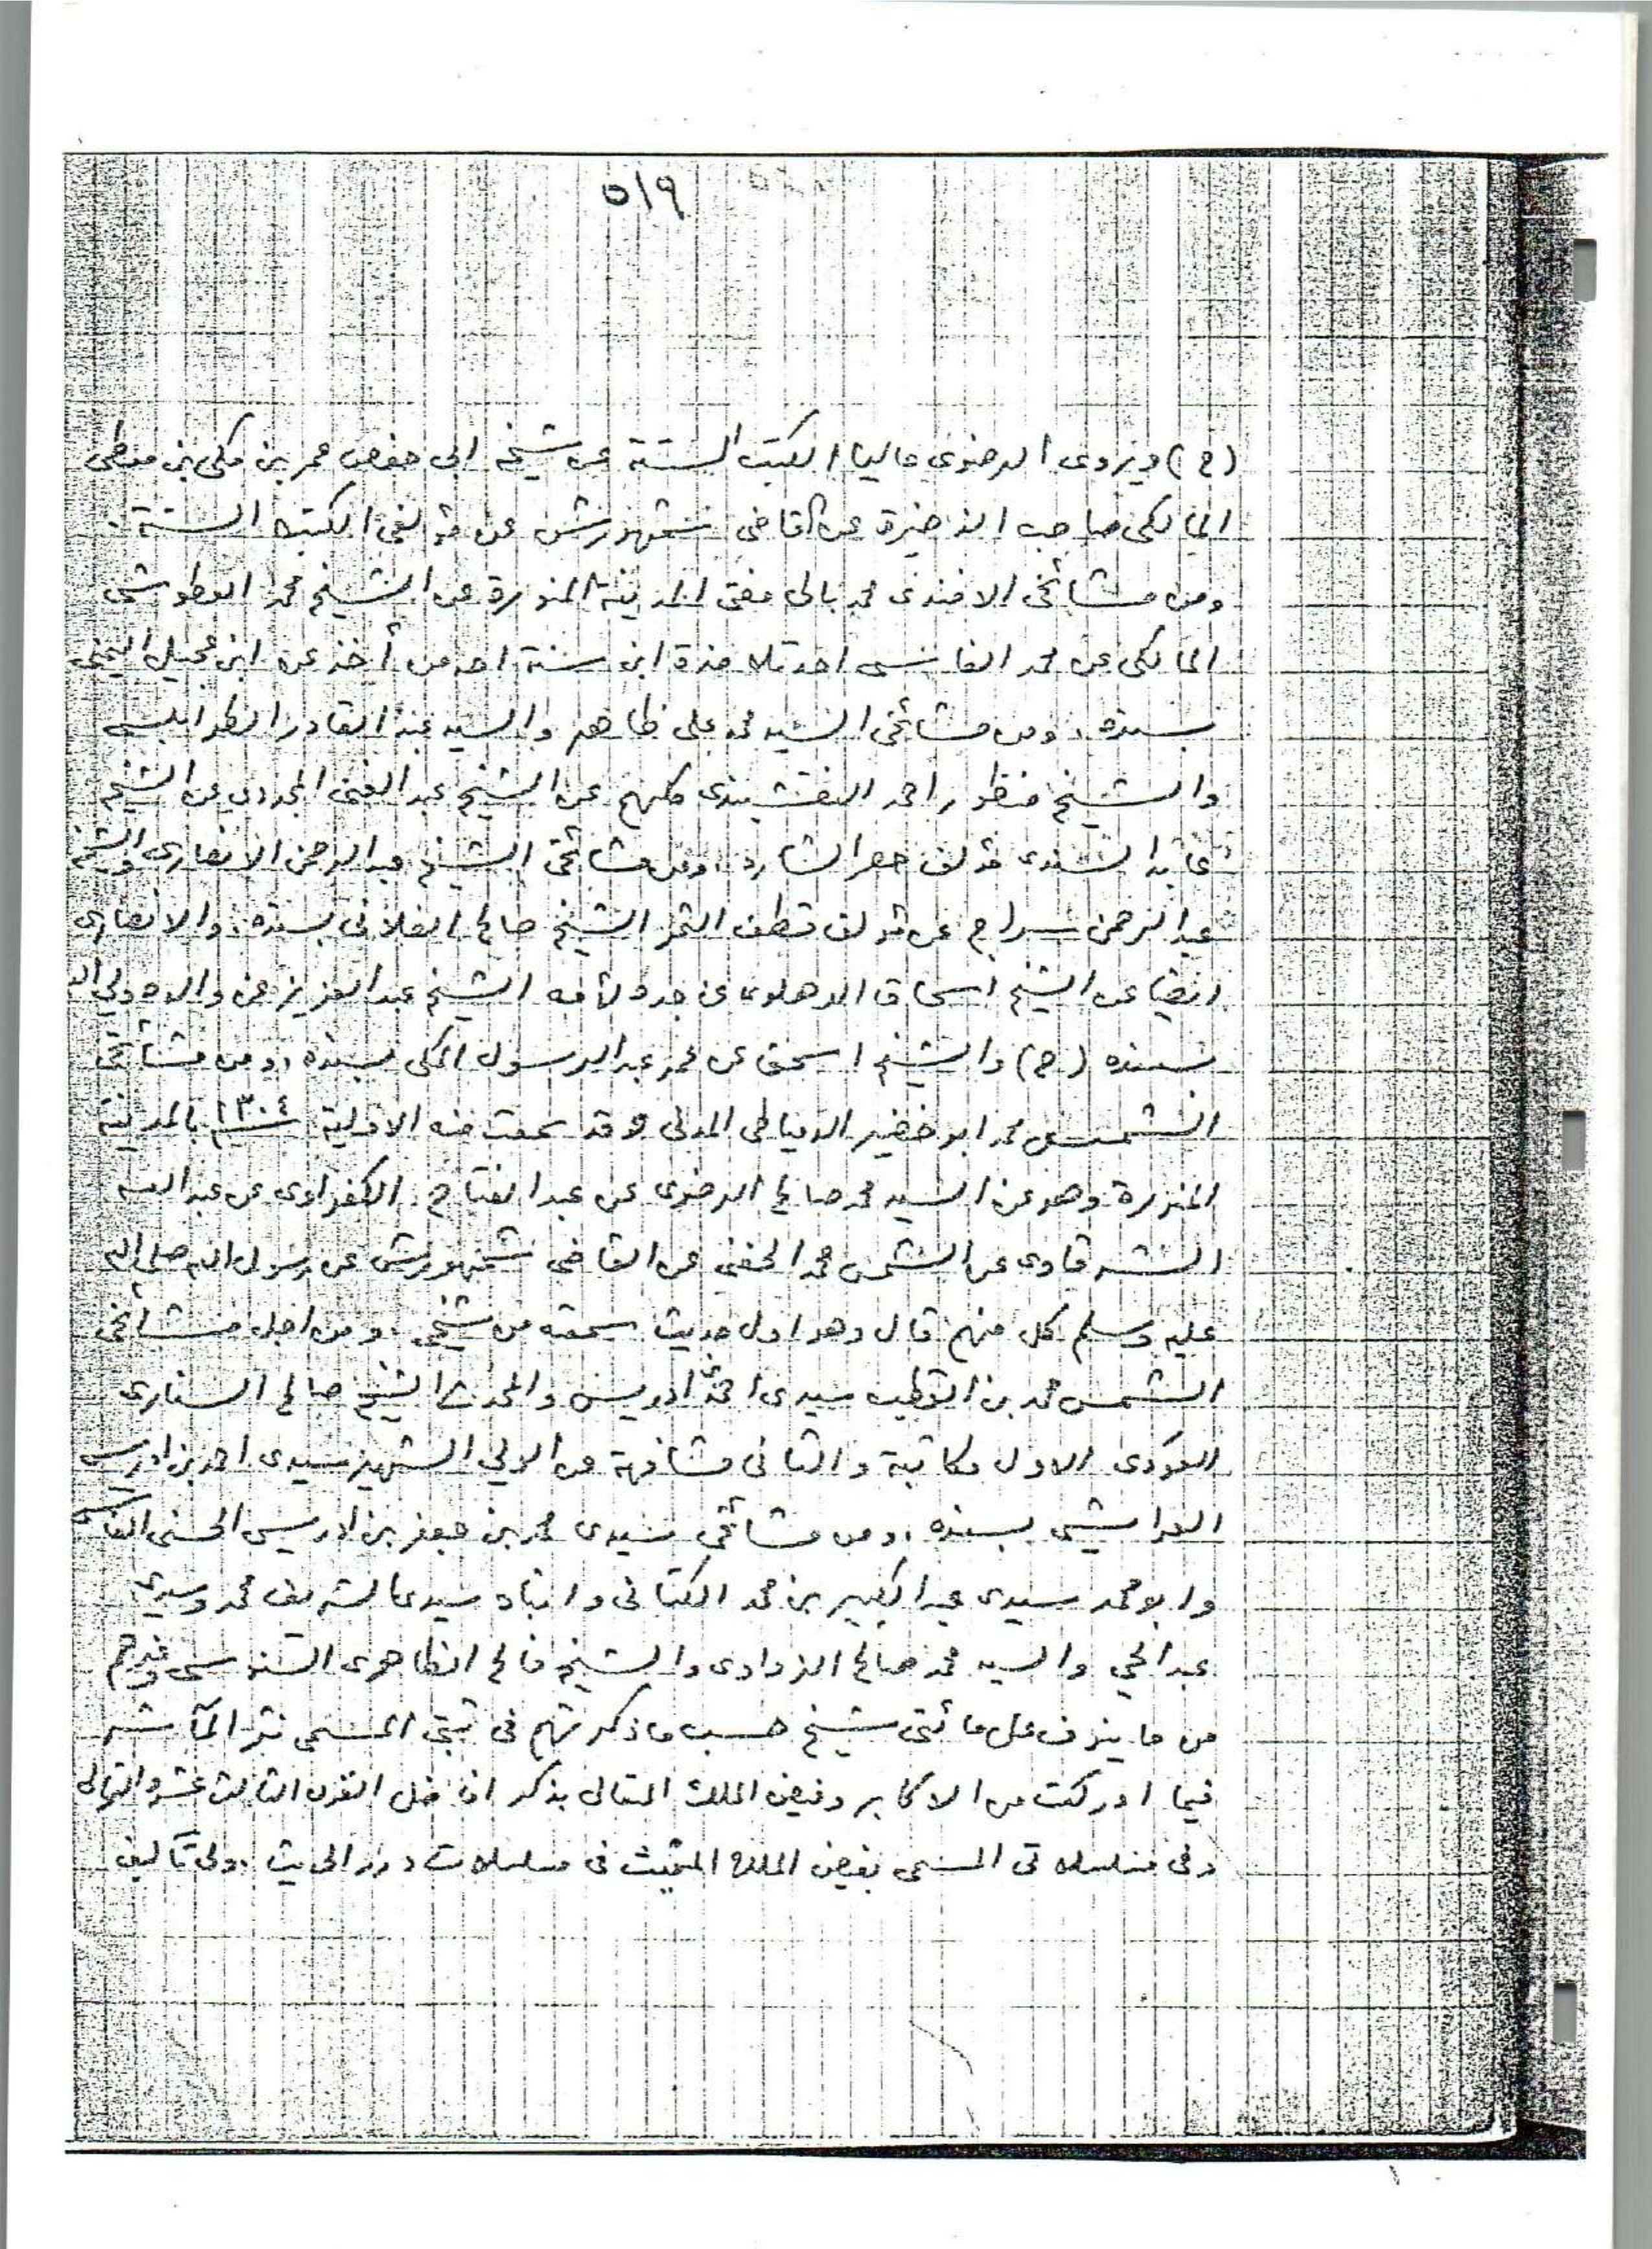 ٥١٩
(ح) ويروى الرضوى عاليا الكتب الستة عن شيخه ابى حفص عمر بن مكى بن معطى
المالكى صاحب الذخيرة عن القاضى شمهورش عن مؤلفى الكتب الستة.
ومن مشائخى الافندى محمد بالى مفتى المدينة المنورة عن الشيخ محمد العطوشى
المالكى عن محمد الفاسى احد تلامذة ابن سنة احد من أخذ عن ابن عجيل اليمنى
بسنده، ومن مشائخى السيد محمد على ظاهر والسيد عبد القادر الطرابلسى
والشيخ منظور احمد النقشبندى كلهم عن الشيخ عبد الغنى المجددى عن الشيخ
عابد السندى مؤلف حصر الشارد، ومن مشائخى الشيخ عبد الرحمن الانصارى والشيخ
عبد الرحمن سراج عن مؤلف قطف الثمر الشيخ صالح الفلانى بسنده، والانصارى
ايضا عن الشيخ اسحاق الدهلوى عن جده لأمه الشيخ عبد العزيز عن والده ولى الله
بسنده (ح) والشيخ اسحق عن عمر عبد الرسول المكى بسنده، ومن مشائخى
الشمس محمد ابو خضير الدمياطى المدنى وقد سمعت منه الاولية سنة ١٣٠٤ بالمدينة
المنورة وهو عن السيد محمد صالح الرضوى عن عبد الفتاح الكفراوى عن عبد الله
الشرقاوى عن الشمس محمد الحفنى عن القاضى شمهورش عن رسول الله صلى الله
عليه وسلم كل منهم قال وهو اول حديث سمعته من شيخى، ومن اجل مشائخى
الشمس محمد بن القطب سيدى احمد ادريس والمحدث الشيخ صالح السنارى
العودى الاول مكاتبة والثانى مشافهة عن الولي الشهير سيدى احمد بن ادريس
العرايشى بسنده، ومن مشائخى سيدى محمد بن جعفر بن ادريس الحسنى الفاسى
وابو محمد سيدى عبد الكبير بن محمد الكتانى وابناه سيدى الشريف محمد وسيدى
عبد الحي والسيد محمد صالح الزواوى والشيخ فالح الظاهرى السنوسى وغيرهم
من ما ينوف على مائتى شيخ حسب ما ذكرتهم فى ثبتى المسمى نثر المآثر
فيما ادركت من الاكابر وفيض الملك المتعالى بذكر افاضل القرن الثالث عشر والتوالى
وفى مسلسلاتى المسمى بفيض الملك المغيث فى مسلسلات درر الحديث، ولى تآليف